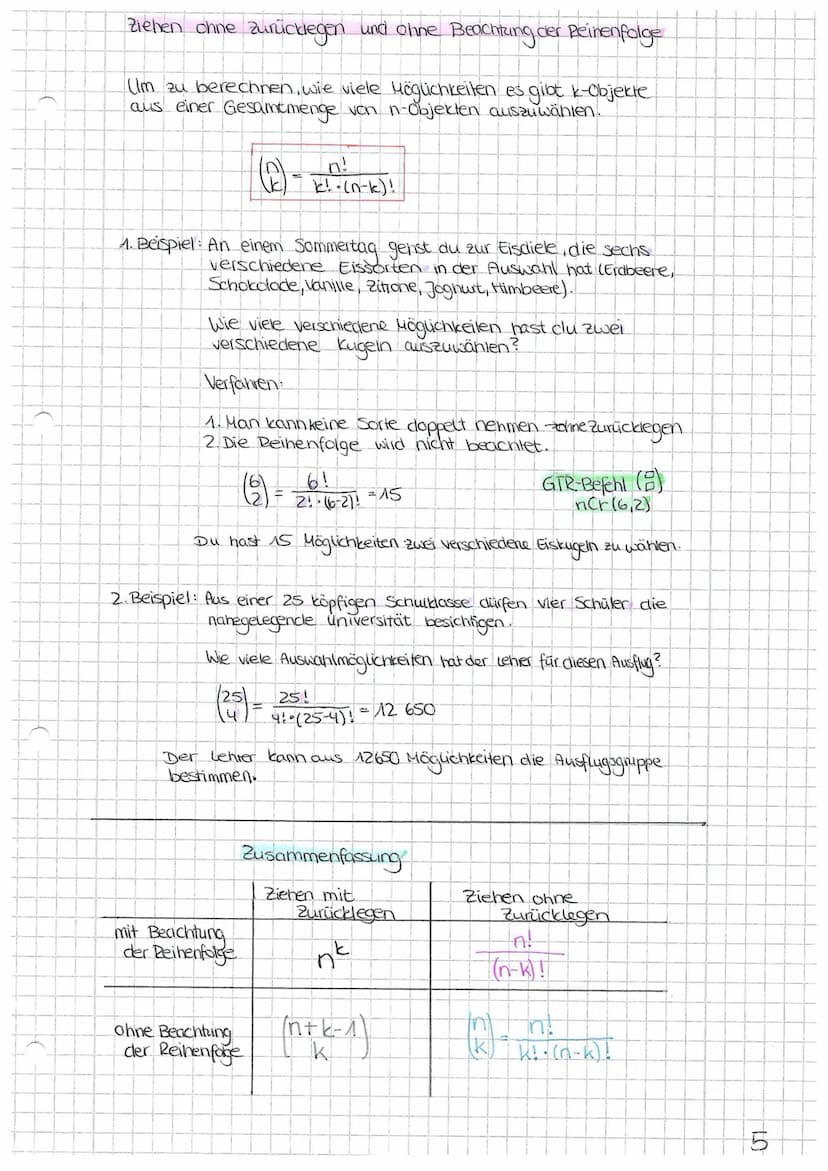 Ziehen ohne Zurücklegen und ohne Beachtung der Reihenfolge
Um zu berechnen, wie viele Möglichkeiten es gibt k-Objekte
aus einer Gesamtmenge von n-Objekten auszuwählen.
(n k) = n! / k!·(n-k)!
1. Beispiel: An einem Sommertag gehst du zur Eisdiele, die sechs
verschiedene Eissorten in der Auswahl hat (Erdbeere,
Schokolade, Vanille, Zitrone, Joghurt, Himbeere).
Wie viele verschiedene Möglichkeiten hast du zwei
verschiedene Kugeln auszuwählen?
Verfahren:
1. Man kann keine Sorte doppelt nehmen → ohne Zurücklegen
2. Die Reihenfolge wird nicht beachtet.
(6 2) = 6! / 2!·(6-2)! = 15
GTR-Befehl (▯ ▯)
nCr(6,2)
Du hast 15 Möglichkeiten zwei verschiedene Eiskugeln zu wählen.
2. Beispiel: Aus einer 25 köpfigen Schulklasse dürfen vier Schüler die
nahegelegende Universität besichtigen.
Wie viele Auswahlmöglichkeiten hat der Leher für diesen Ausflug?
(25 4) = 25! / 4!·(25-4)! = 12 650
Der Lehrer kann aus 12650 Möglichkeiten die Ausflugsgruppe
bestimmen.
Zusammenfassung
Ziehen mit
Zurücklegen
Ziehen ohne
Zurücklegen
mit Beachtung
der Reihenfolge
n^k
n! / (n-k)!
ohne Beachtung
der Reihenfolge
(n+k-1 k)
(n k) = n! / k!·(n-k)!
5